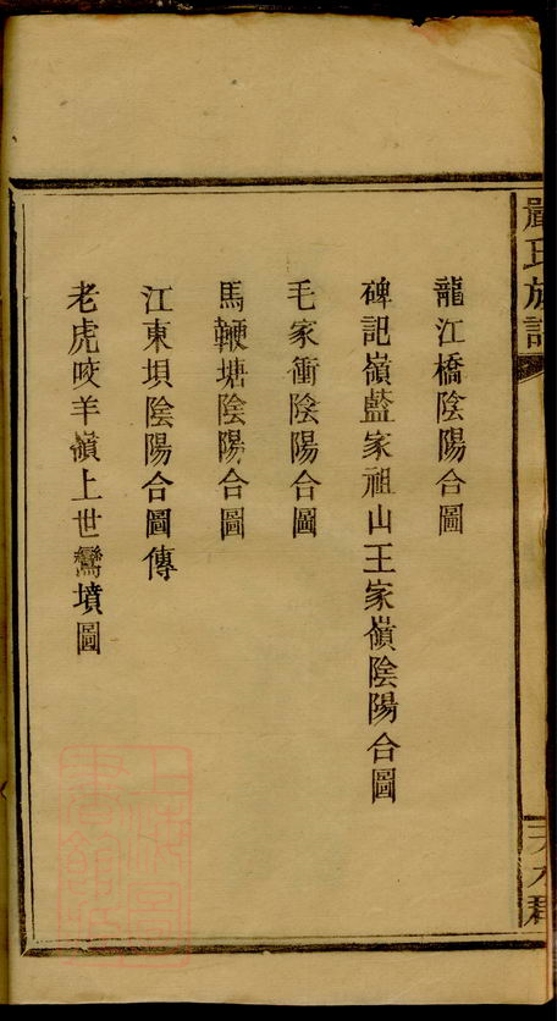 嚴氏族譜
龍江橋陰陽合圖
碑記嶺藍家祖山王家嶺陰陽合圖
毛家衝陰陽合圖
馬鞭塘陰陽合圖
江東垻陰陽合圖傳
老虎咬羊嶺上世鸞墳圖
天水郡